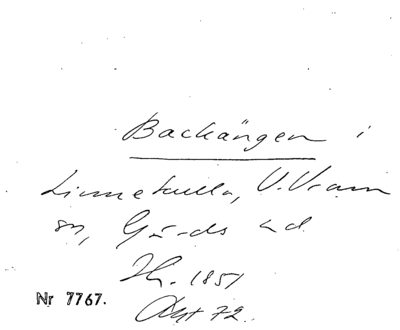 Backängen i
Linnekulla, V. Vram
sn, Gärds hd.
Hr. 1851
Nr 7767.
Akt 72.